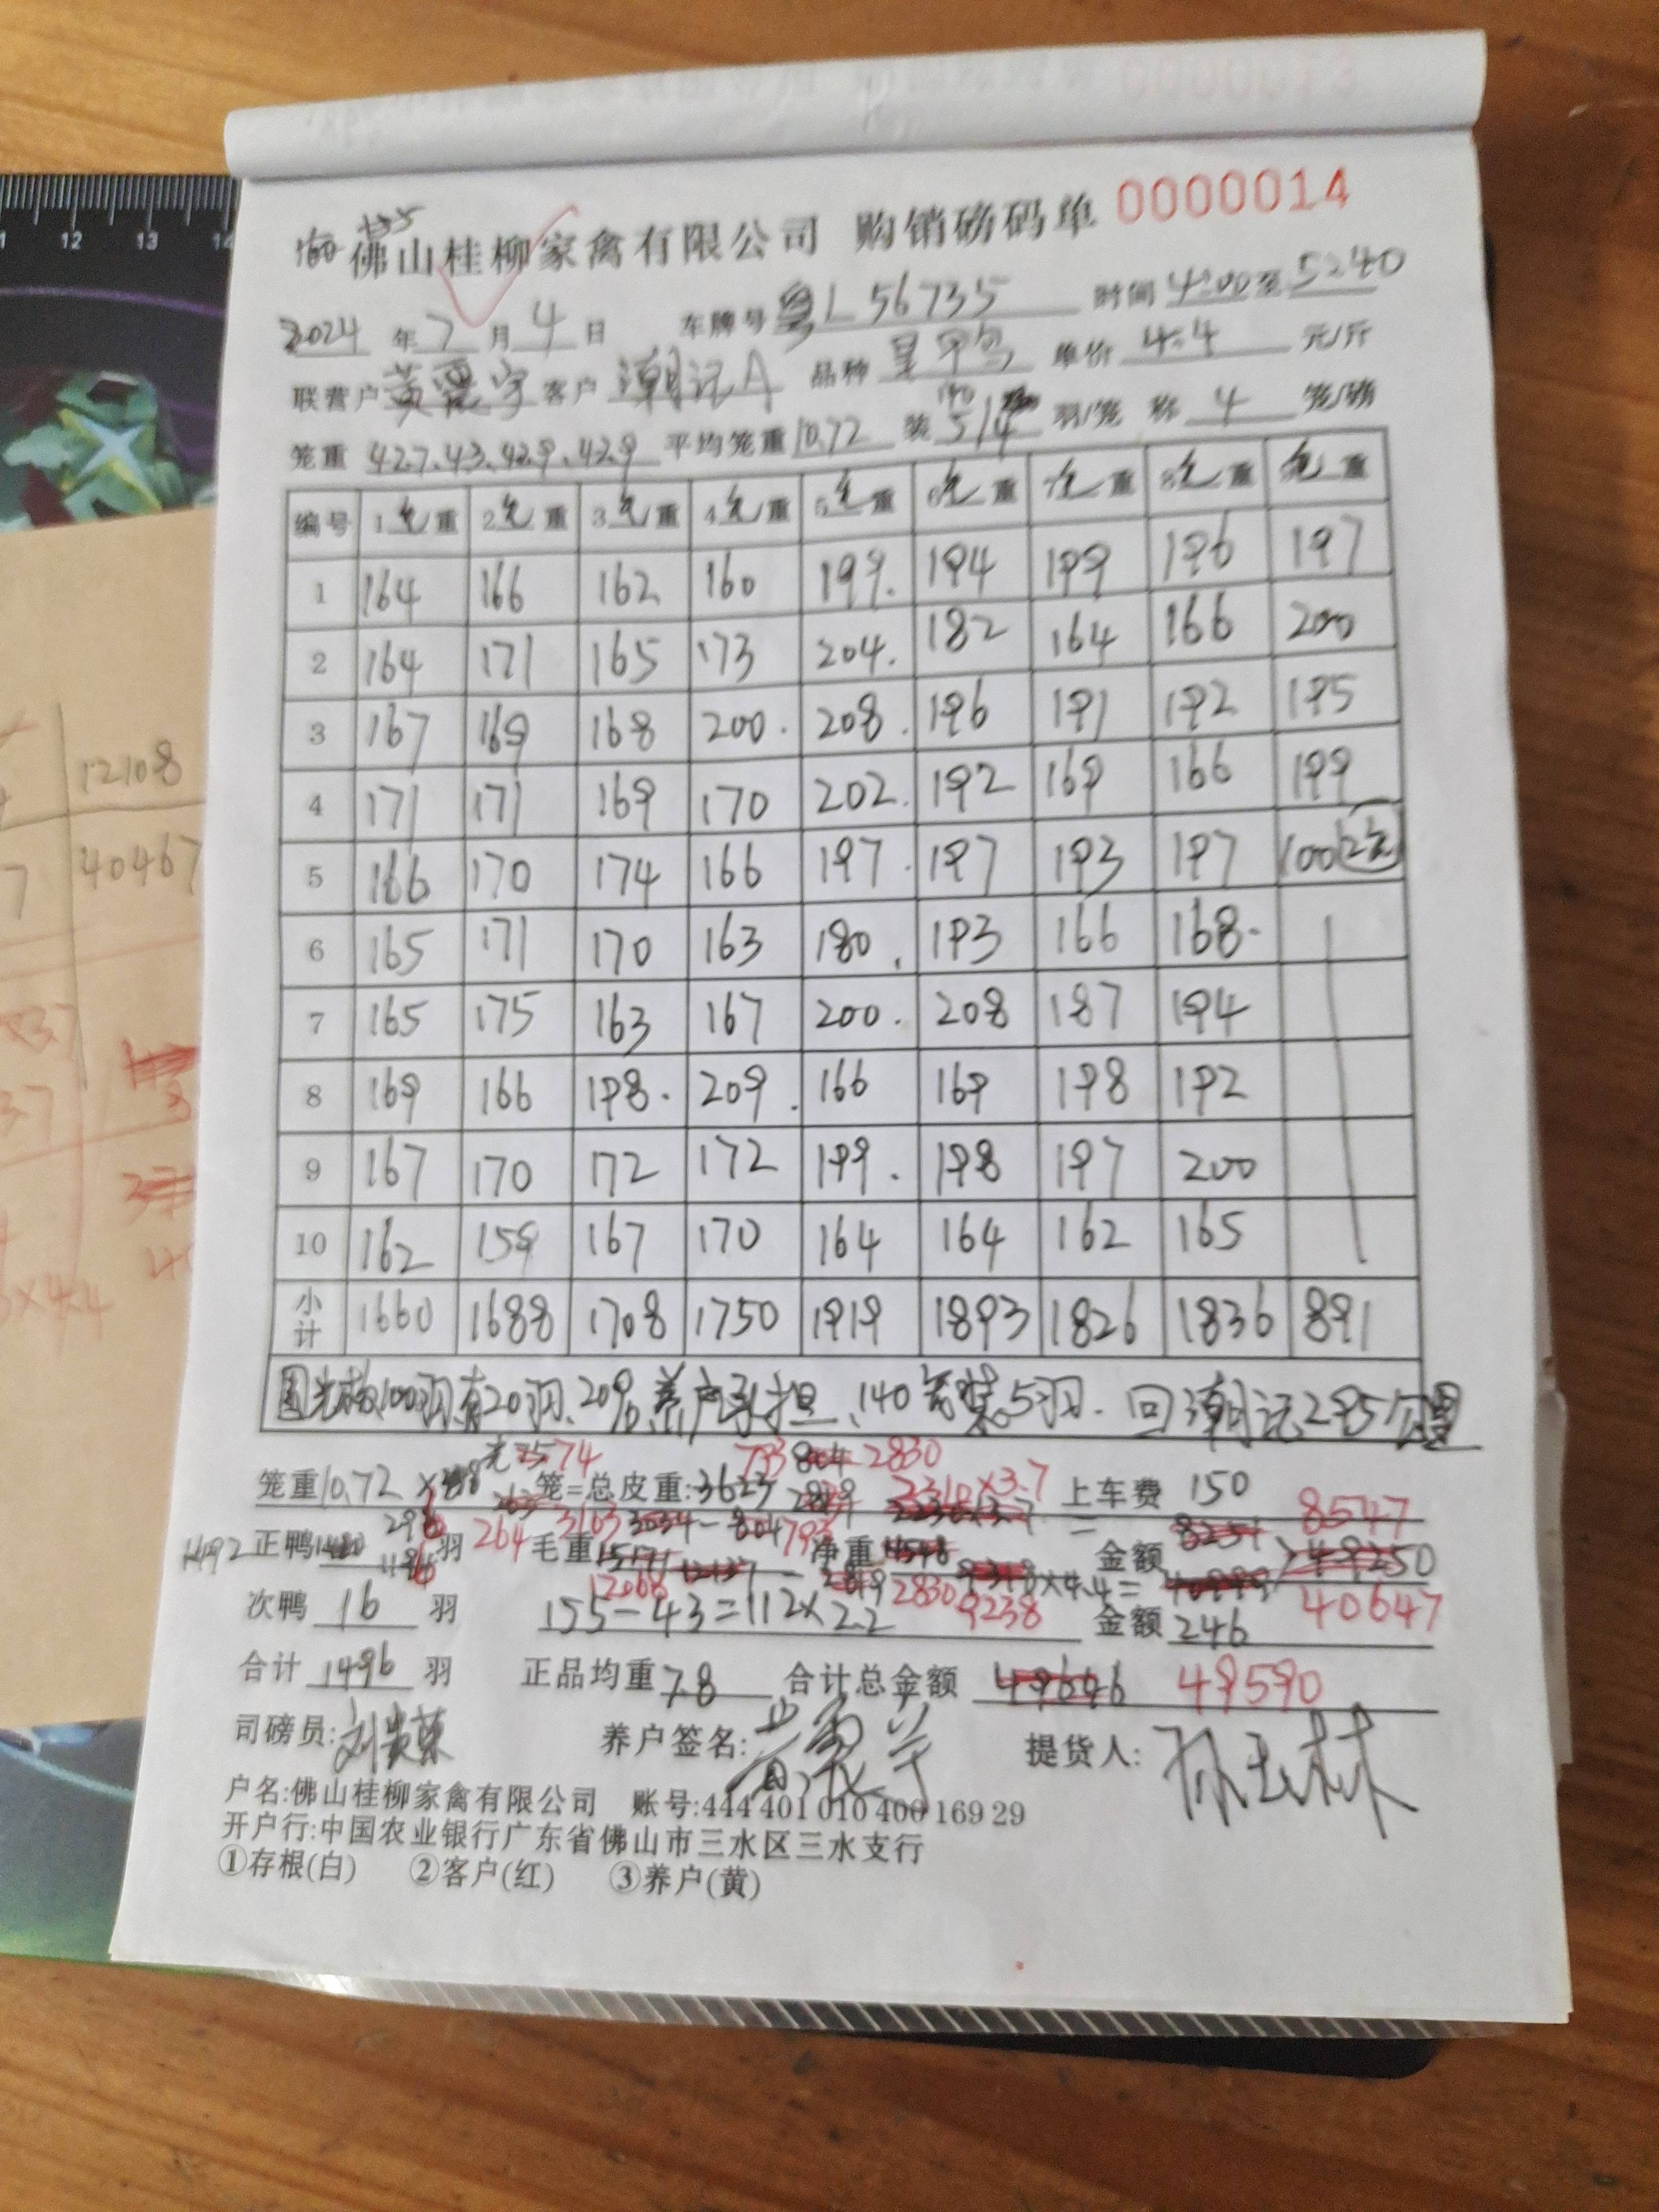 0000014
佛山桂柳家禽有限公司 购销磅码单
2024年7月4日 车牌号粤L56735 时间4:00至5:240
联营户黄 客户潮记A 品种 单价4.4元/斤
笼重42.7.43.42.9.42.9 平均笼重10.72 装5/4羽/笼 称4笼/磅
编号 1笼重 2笼重 3笼重 4笼重 5笼重 6笼重 7笼重 8笼重 笼重
1 164 166 162 160 199. 194 199 196 197
2 164 171 165 173 204. 182 164 166 200
3 167 169 168 200. 208. 196 191 192 195
4 171 171 169 170 202. 192 169 166 199
5 166 170 174 166 197. 197 193 197 100 2笼
6 165 171 170 163 180. 193 166 168.
7 165 175 163 167 200. 208 187 194
8 169 166 198. 209. 166 169 198 192
9 167 170 172 172 199. 198 197 200
10 162 159 167 170 164 164 162 165
小计 1660 1688 1708 1750 1919 1893 1826 1836 891
100羽有20羽、20% 养户承担、140笼装5羽. 回潮记295公里
74 793 804 2830
笼重10.72× 笼=总皮重:3623 2310×3.7 上车费 150
264 3103 793 = 8547
1492 正鸭 羽 毛重15171 净重 金额
12068 2830 9238 ×4.4= 40647
次鸭 16 羽 155-43=112×2.2 金额246
合计 1496 羽 正品均重7.8 合计总金额 49590
司磅员:刘 养户签名:黄 提货人:孙玉林
户名:佛山桂柳家禽有限公司 账号:444 401 010 400 169 29
开户行:中国农业银行广东省佛山市三水区三水支行
①存根(白) ②客户(红) ③养户(黄)
12 13 14
12108
40467
×3.7
×4.4